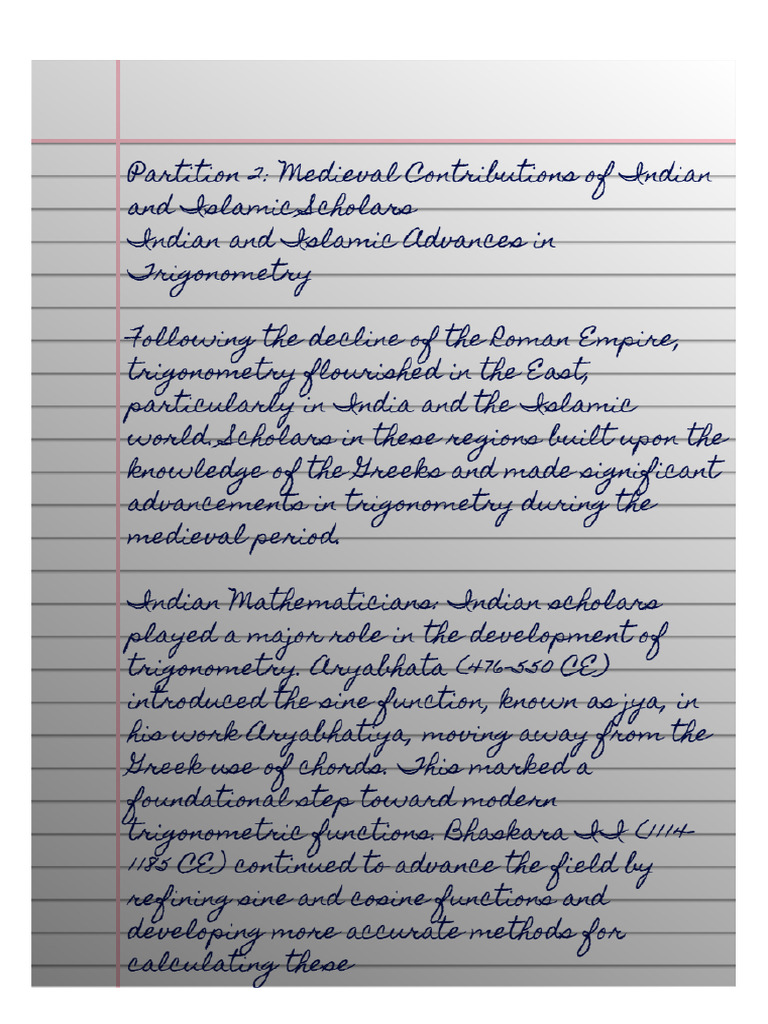 Partition 2: Medieval Contributions of Indian
and Islamic Scholars
Indian and Islamic Advances in
Trigonometry
Following the decline of the Roman Empire,
trigonometry flourished in the East,
particularly in India and the Islamic
world. Scholars in these regions built upon the
knowledge of the Greeks and made significant
advancements in trigonometry during the
medieval period.
Indian Mathematicians: Indian scholars
played a major role in the development of
trigonometry. Aryabhata (476-550 CE)
introduced the sine function, known as jya, in
his work Aryabhatiya, moving away from the
Greek use of chords. This marked a
foundational step toward modern
trigonometric functions. Bhaskara II (1114-
1185 CE) continued to advance the field by
refining sine and cosine functions and
developing more accurate methods for
calculating these